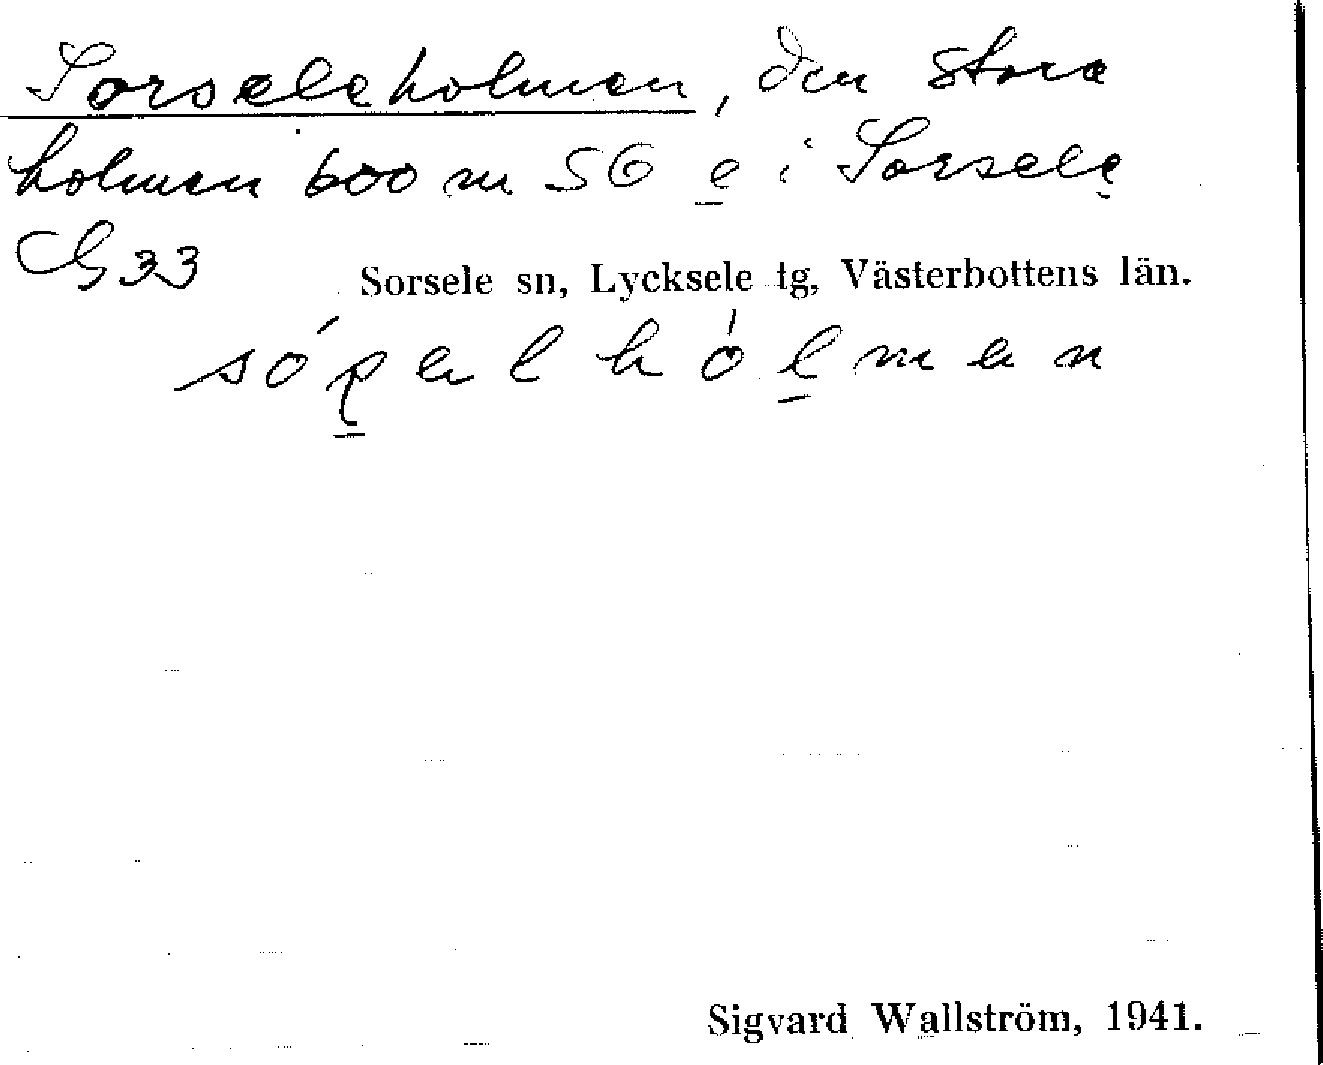 Sorseleholmen, den stora
holmen 600 m SO e i Sorsele
G 33
Sorsele sn, Lycksele tg, Västerbottens län.
Sigvard Wallström, 1941.